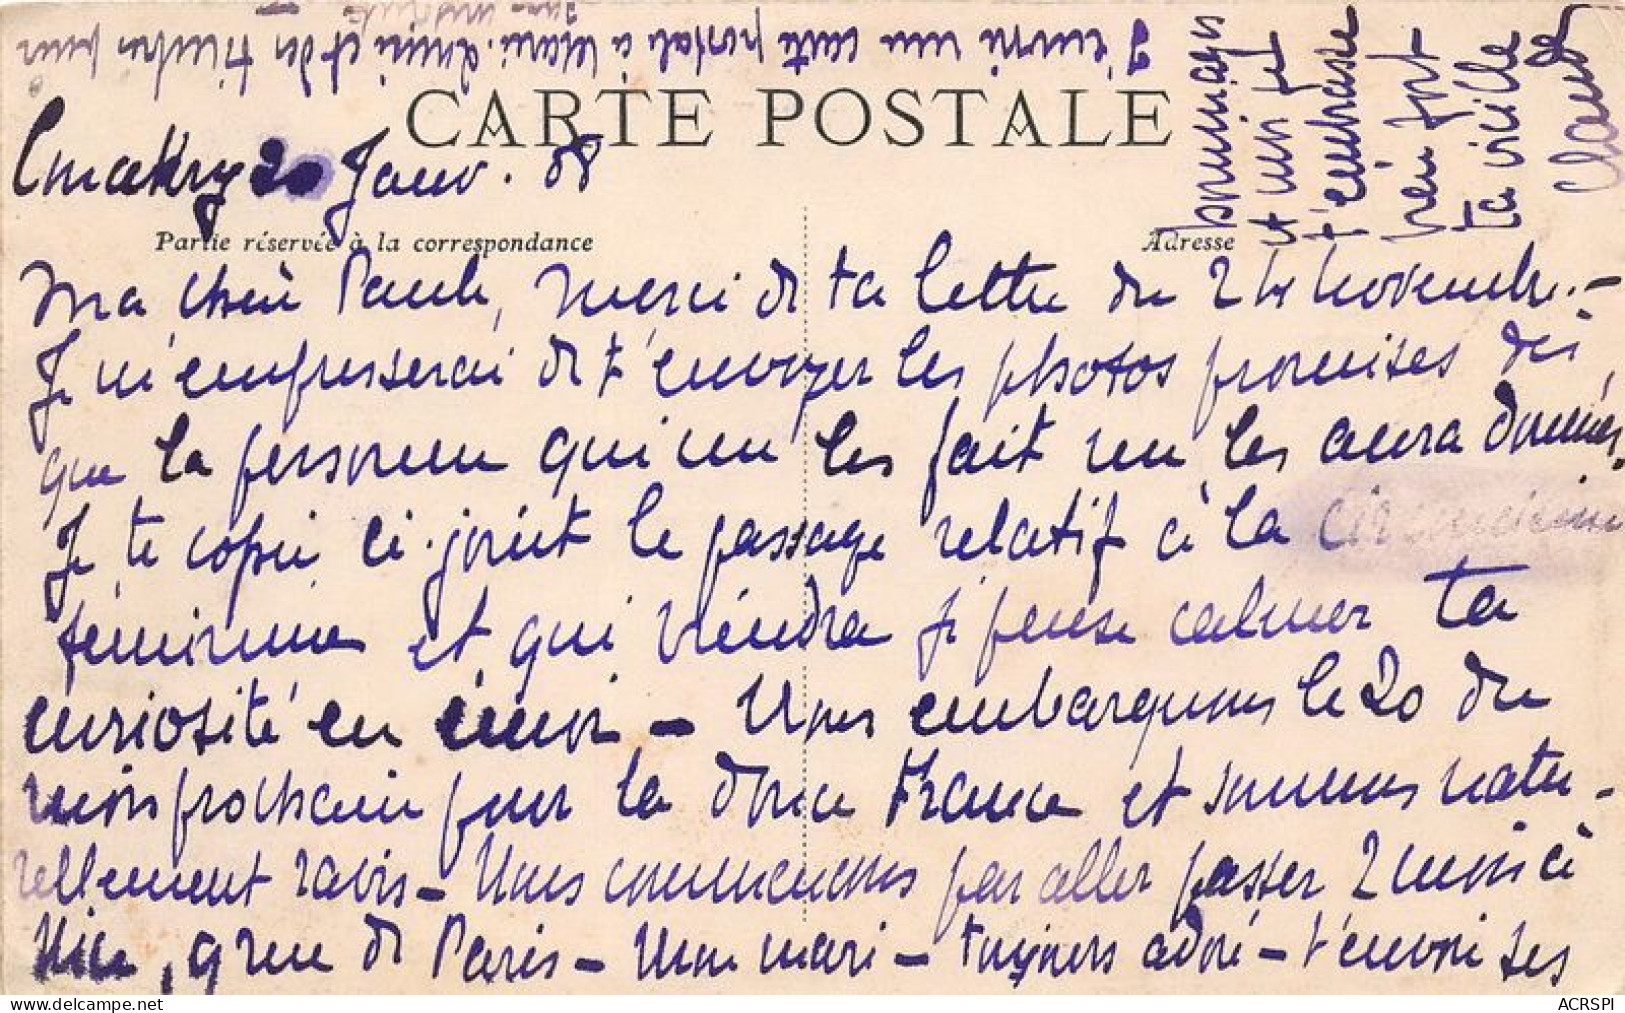 CARTE POSTALE
Conakry 20 Janv. 08
Partie réservée à la correspondance
Adresse
Ma chère Paule, merci de ta lettre du 24 Novembre. -
Je m'empresserai de t'envoyer les photos promises dès
que la personne qui me les fait me les aura données.
Je te copie ci-joint le passage relatif à la circoncision
féminine et qui viendra je pense calmer ta
curiosité en émoi - Nous embarquons le 20 du
mois prochain pour la douce France et sommes natu-
rellement ravis - Nous commencerons par aller passer 2 mois à
Nice, 9 rue de Paris - Mon mari - toujours adoré - t'envoie ses
hommages
et moi je
t'embrasse
bien fort
ta vieille
Claude
J'envoie une carte postale à et des timbres pour
ACRSPI